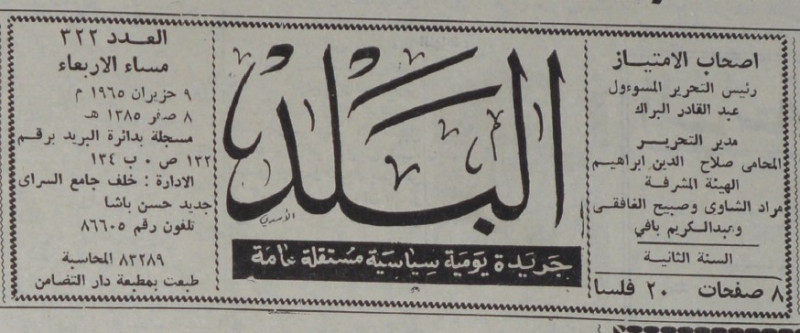 اصحاب الامتياز
رئيس التحرير المسوءول
عبد القادر البراك
مدير التحرير
المحامى صلاح الدين ابراهيم
الهيئة المشرفة
مراد الشاوى وصبيح الغافقى
وعبدالكريم بافي
السنة الثانية
٨ صفحات ٢٠ فلسا
البلد
جريدة يومية سياسية مستقلة عامة
العدد ٣٢٢
مساء الاربعاء
٩ حزيران ١٩٦٥ م
٨ صفر ١٣٨٥ هـ
مسجلة بدائرة البريد برقم
١٢٢ ص ٠ ب ١٣٤
الادارة : خلف جامع السراى
جديد حسن باشا
تلفون رقم ٨٦٦٠٥
٨٣٢٨٩ المحاسبة
طبعت بمطبعة دار التضامن